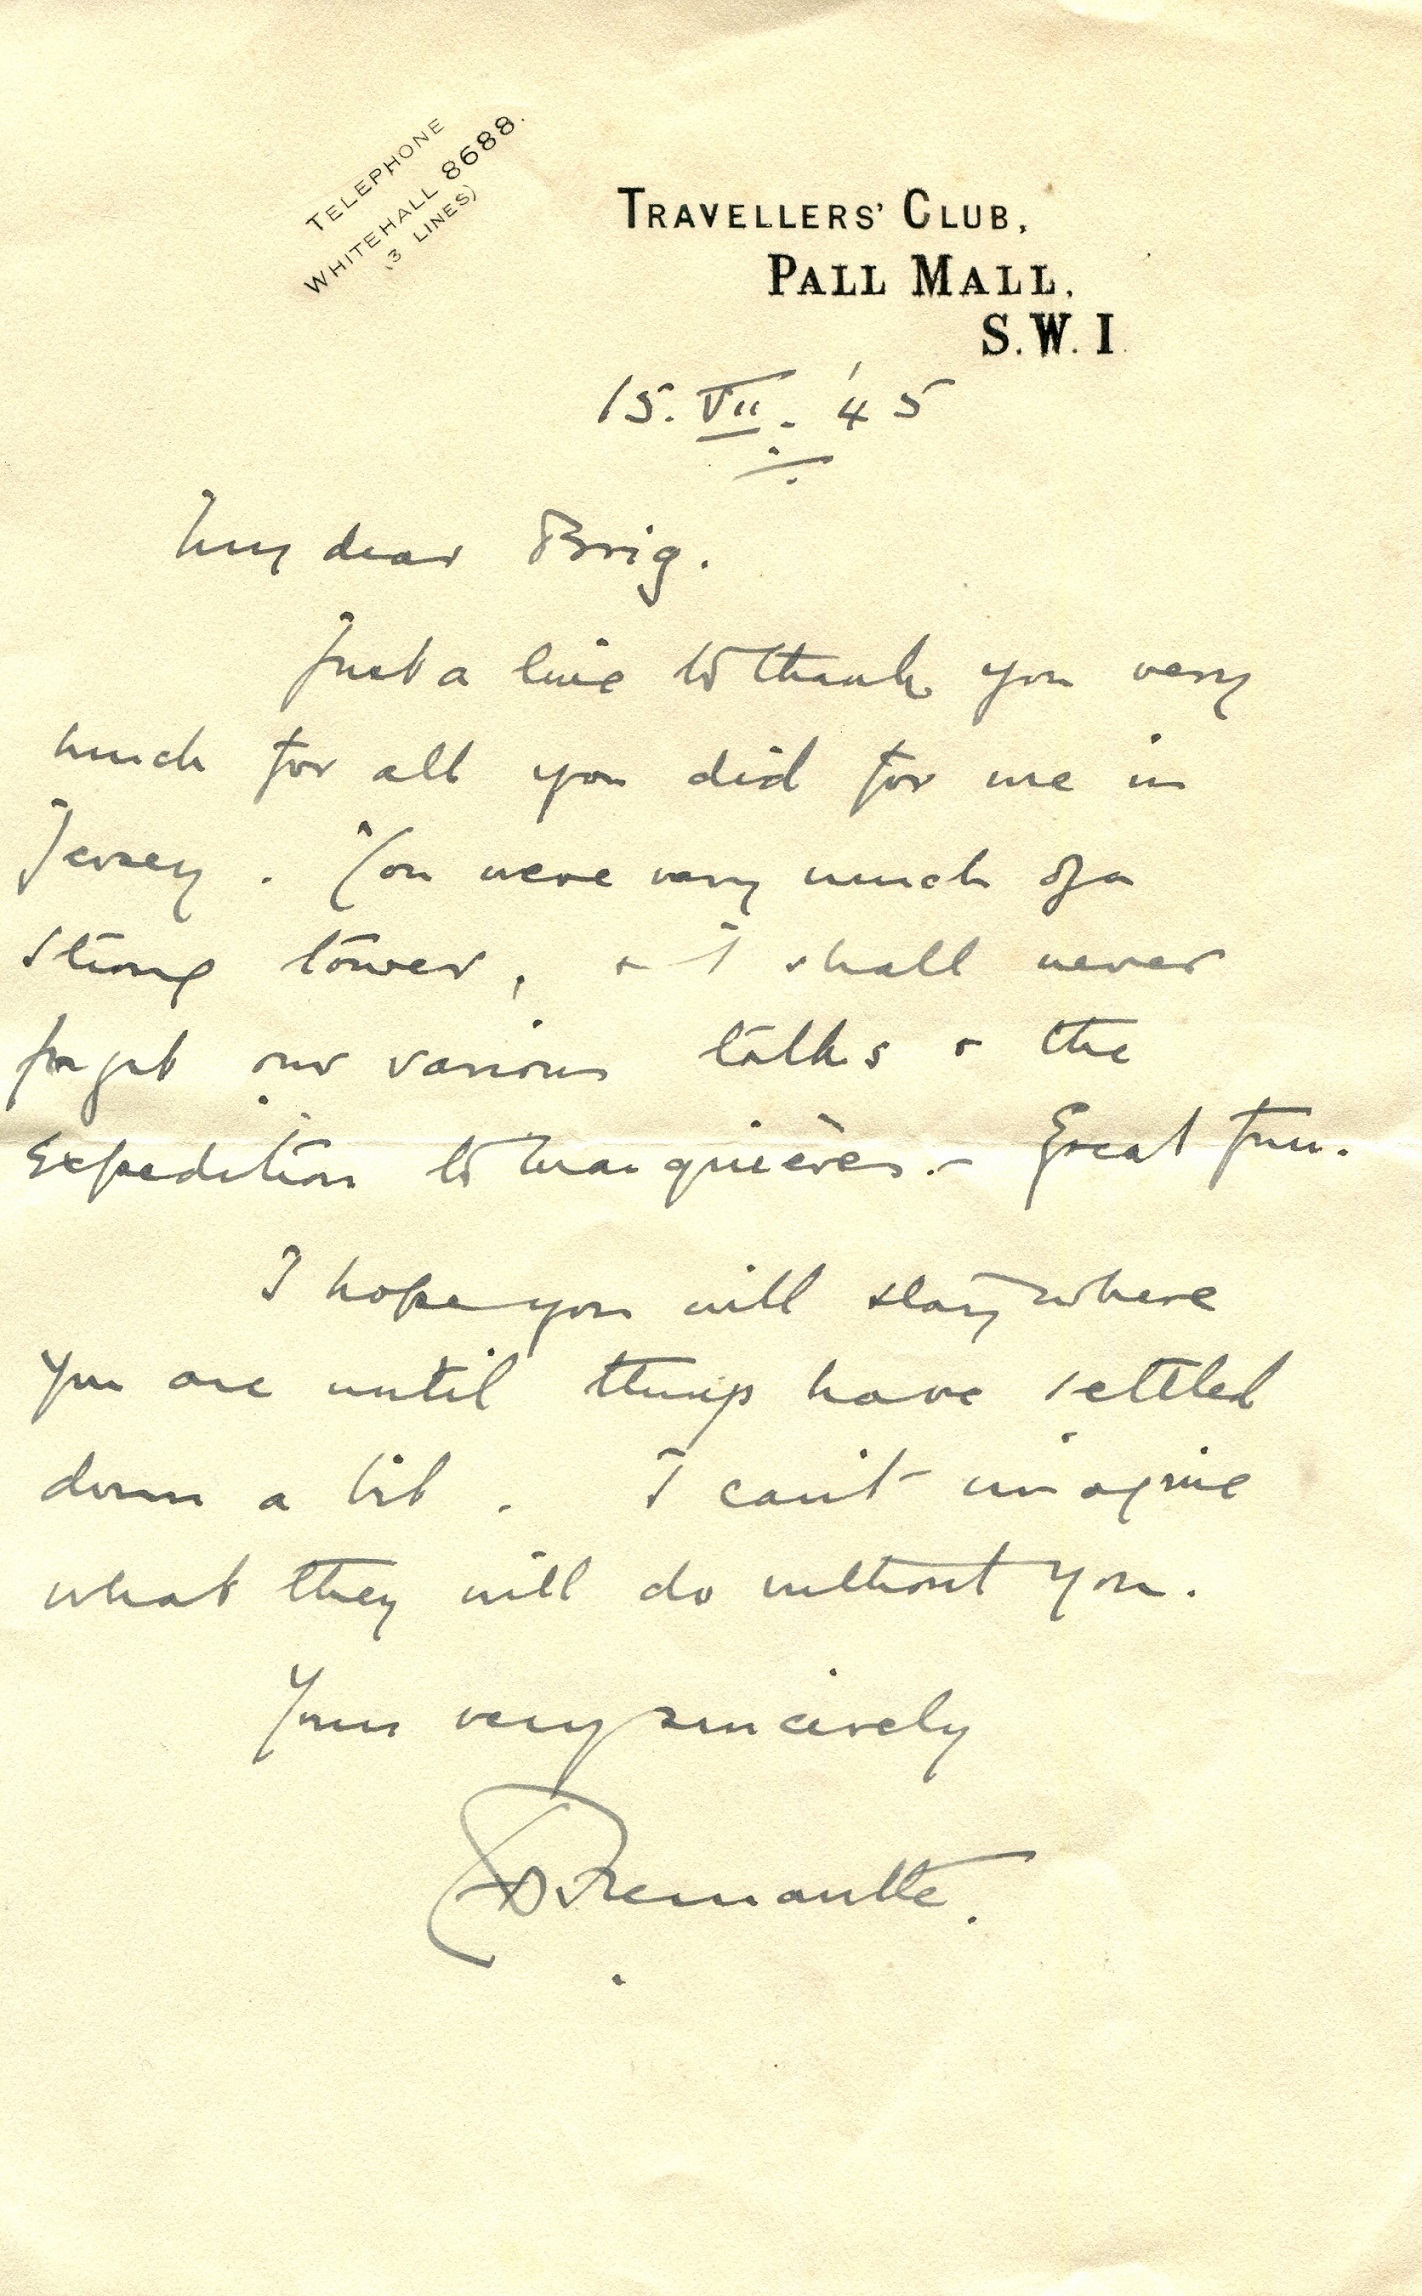 TELEPHONE
WHITEHALL 8688.
(3 LINES)
TRAVELLERS' CLUB,
PALL MALL,
S.W. I.
15. VII. '45
My dear Brig.
Just a line to thank you very
much for all you did for me in
Jersey. You were very much of a
strong tower, & I shall never
forget our various talks & the
expedition to Minquières. - Great fun.
I hope you will stay where
you are until things have settled
down a bit. I can't imagine
what they will do without you.
Yours very sincerely
Fremantle.